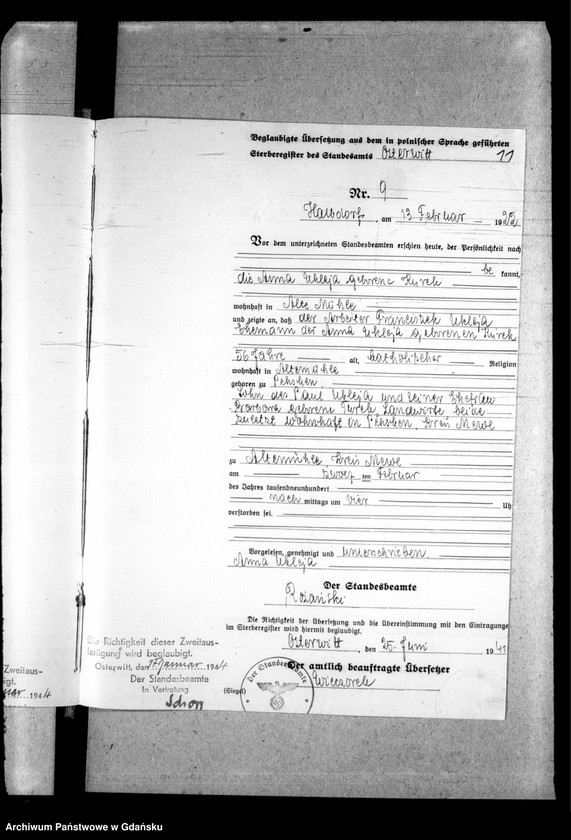 Beglaubigte Übersetzung aus dem in polnischer Sprache geführten
Sterberegister des Standesamts Osterwitt 11
Nr. 9
am 13. Februar 1922
Vor dem unterzeichneten Standesbeamten erschien heute, der Persönlichkeit nach
be kannt,
die Anna Ukleja geborene Kurek
wohnhaft in Alte Mühle
und zeigte an, daß der Arbeiter Franciszek Ukleja
Ehemann der Anna Ukleja geborenen Kurek
56 Jahre alt, katholischer Religion
wohnhaft in Altemühle
geboren zu
Sohn des Paul Ukleja und seiner Ehefrau
Barbara geborene Landwirte beide
zuletzt wohnhaft in Kreis Mewe
zu Altemühle, Kreis Mewe
am ten Februar
des Jahres tausendneunhundert
nach mittags um vier Uh
verstorben sei.
Vorgelesen, genehmigt und unterschrieben
Anna Ukleja
Der Standesbeamte
Rozański
Die Richtigkeit der Übersetzung und die Übereinstimmung mit den Eintragungen
im Sterberegister wird hiermit beglaubigt.
Osterwitt, den 25. Juni 1941
Der amtlich beauftragte Übersetzer
(Siegel) Wieczorek
Der Standesbeamte
Die Richtigkeit dieser Zweitaus-
fertigung wird beglaubigt.
Osterwitt, den 17. Januar 1944
Der Standesbeamte
In Vertretung
Schon
Zweitaus-
igt.
uar 1944
Archiwum Państwowe w Gdańsku